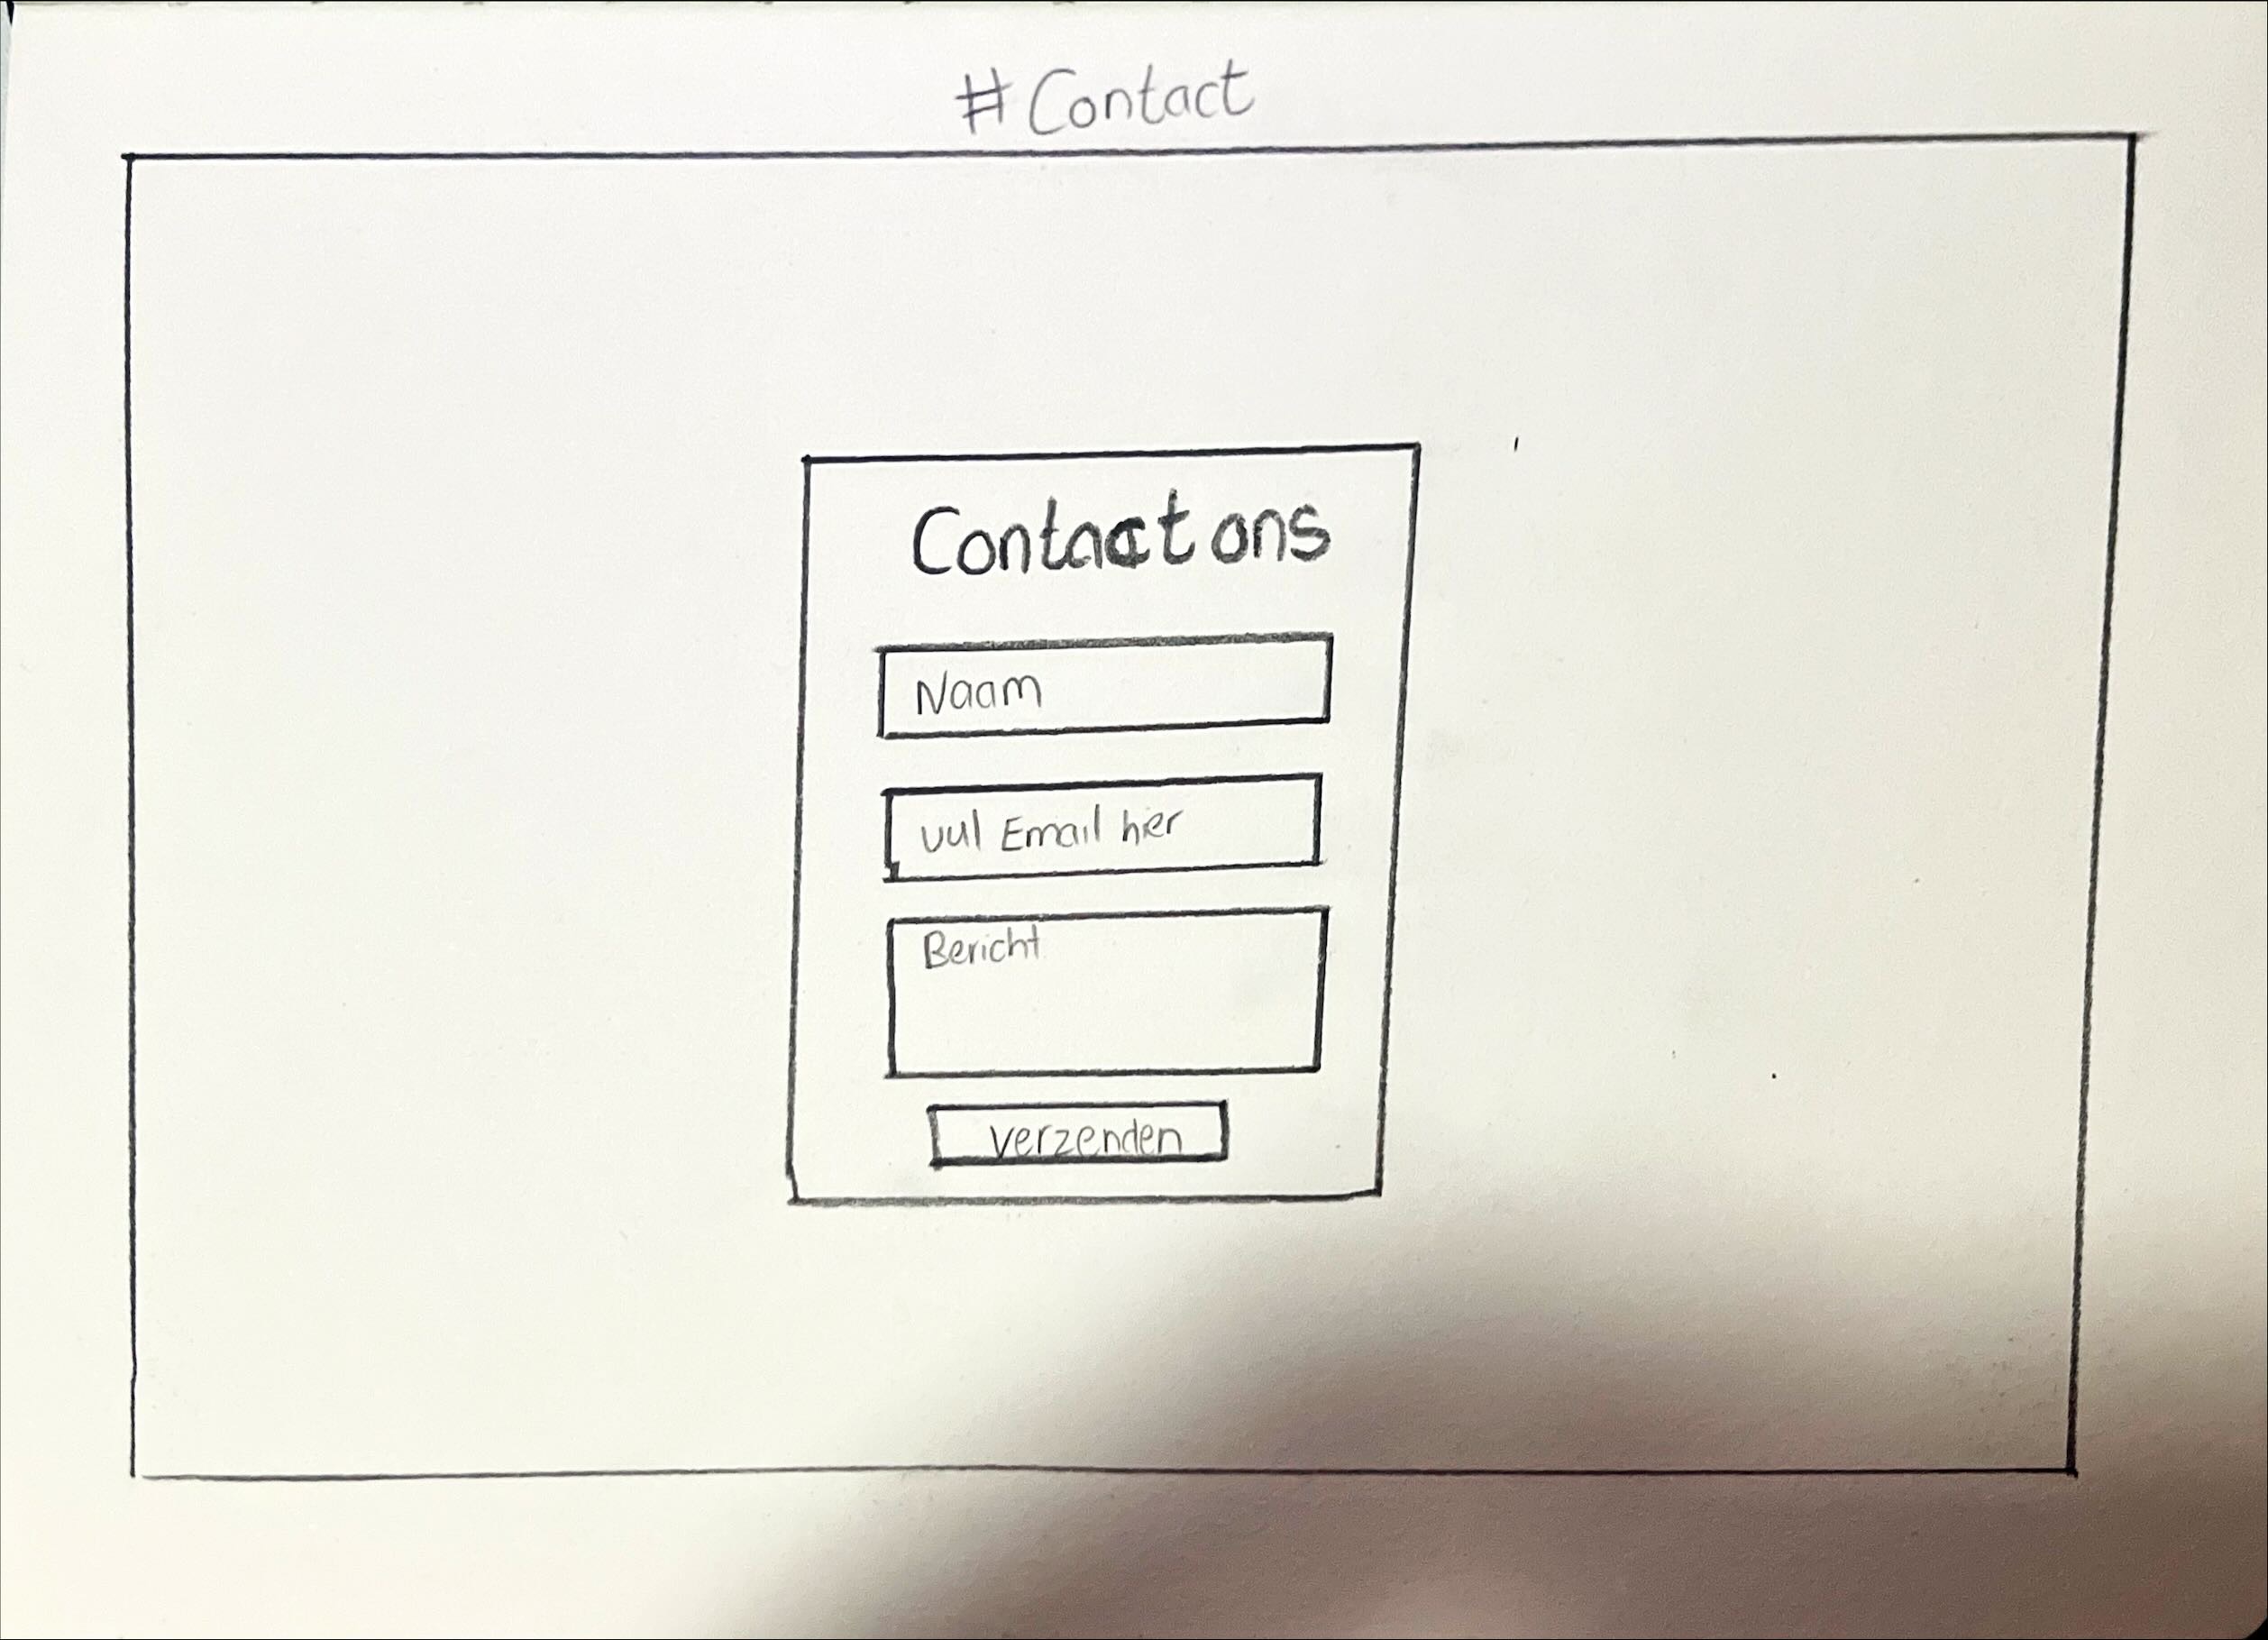 #Contact
Contact ons
Naam
vul Email hier
Bericht
verzenden